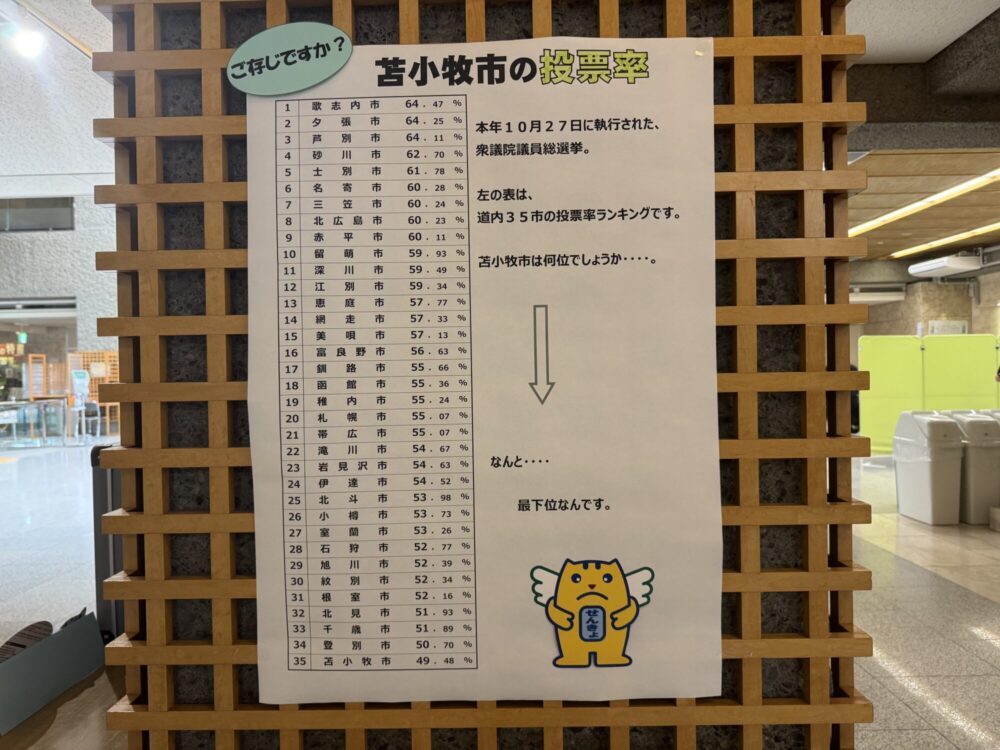 ご存じですか?
苫小牧市の投票率
1 歌志内市 64.47 %
2 夕張市 64.25 %
3 芦別市 64.11 %
4 砂川市 62.70 %
5 士別市 61.78 %
6 名寄市 60.28 %
7 三笠市 60.24 %
8 北広島市 60.23 %
9 赤平市 60.11 %
10 留萌市 59.93 %
11 深川市 59.49 %
12 江別市 59.34 %
13 恵庭市 57.77 %
14 網走市 57.33 %
15 美唄市 57.13 %
16 富良野市 56.63 %
17 釧路市 55.66 %
18 函館市 55.36 %
19 稚内市 55.24 %
20 札幌市 55.07 %
21 帯広市 55.07 %
22 滝川市 54.67 %
23 岩見沢市 54.63 %
24 伊達市 54.52 %
25 北斗市 53.98 %
26 小樽市 53.73 %
27 室蘭市 53.26 %
28 石狩市 52.77 %
29 旭川市 52.39 %
30 紋別市 52.34 %
31 根室市 52.16 %
32 北見市 51.93 %
33 千歳市 51.89 %
34 登別市 50.70 %
35 苫小牧市 49.48 %
本年10月27日に執行された、
衆議院議員総選挙。
左の表は、
道内35市の投票率ランキングです。
苫小牧市は何位でしょうか・・・・。
なんと・・・・
最下位なんです。
せんきょ